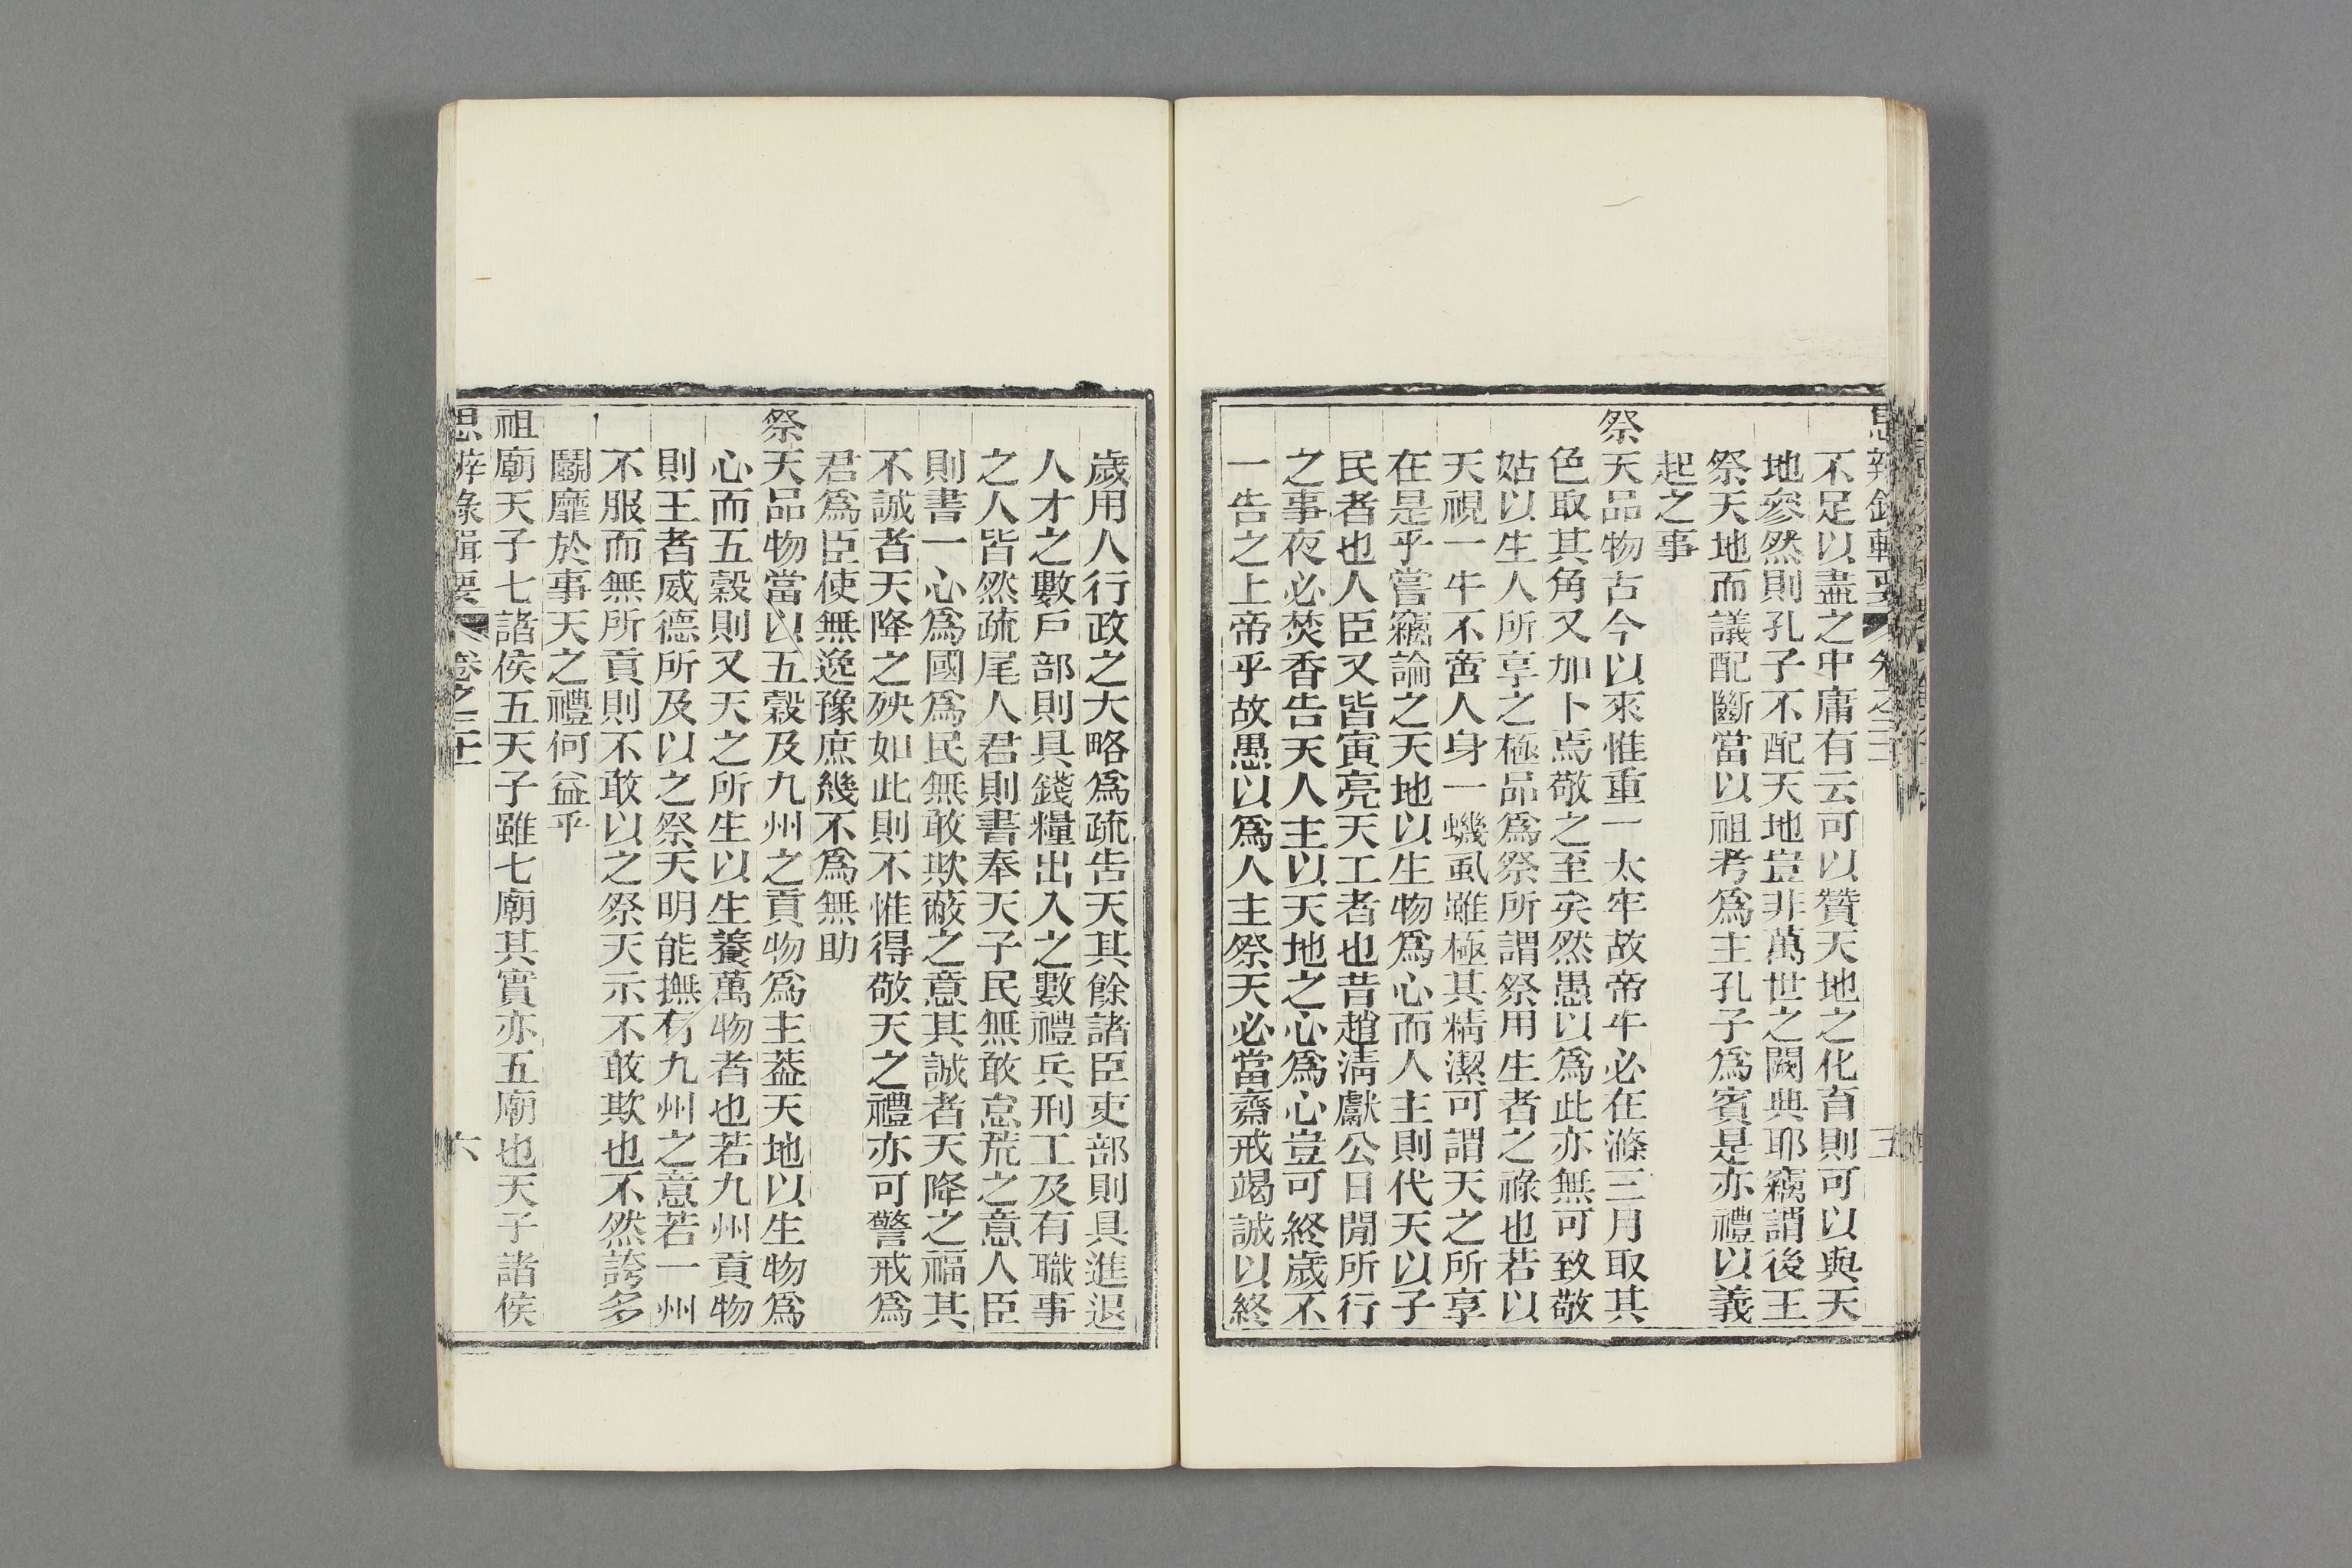 思辨錄輯要 卷之二十 五
不足以盡之中庸有云可以贊天地之化育則可以與天
地參然則孔子不配天地豈非萬世之闕典耶竊謂後王
祭天地而議配斷當以祖考爲主孔子爲賓是亦禮以義
起之事
祭天品物古今以來惟重一太牢故帝牛必在滌三月取其
色取其角又加卜焉敬之至矣然愚以爲此亦無可致敬
姑以生人所享之極品爲祭所謂祭用生者之祿也若以
天視一牛不啻人身一蟣虱雖極其精潔可謂天之所享
在是乎嘗竊論之天地以生物爲心而人主則代天以子
民者也人臣又皆寅亮天工者也昔趙清獻公日閒所行
之事夜必焚香告天人主以天地之心爲心豈可終歲不
一告之上帝乎故愚以爲人主祭天必當齋戒竭誠以終
歲用人行政之大略爲疏告天其餘諸臣吏部則具進退
人才之數戶部則具錢糧出入之數禮兵刑工及有職事
之人皆然疏尾人君則書奉天子民無敢怠荒之意人臣
則書一心爲國爲民無敢欺蔽之意其誠者天降之福其
不誠者天降之殃如此則不惟得敬天之禮亦可警戒爲
君爲臣使無逸豫庶幾不爲無助
祭天品物當以五穀及九州之貢物爲主葢天地以生物爲
心而五穀則又天之所生以生養萬物者也若九州貢物
則王者威德所及以之祭天明能撫有九州之意若一州
不服而無所貢則不敢以之祭天示不敢欺也不然誇多
鬭靡於事天之禮何益乎
祖廟天子七諸侯五天子雖七廟其實亦五廟也天子諸侯
思辨錄輯要 卷之二十 六